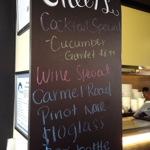 Cocktail Special
- Cucumber
Gimlet
Wine Special
Carmel Road
Pinot Noir
$10 glass